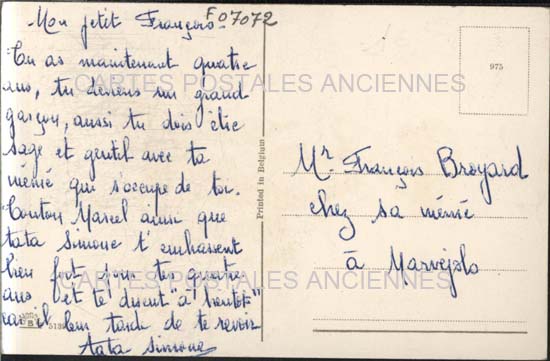 F07072
Mon petit François.
Tu as maintenant quatre
ans, tu deviens un grand
garçon, aussi tu dois être
sage et gentil avec ta
mémé qui s'occupe de toi.
Tonton Marcel ainsi que
tata Simone t'embrassent
bien fort pour tes quatre
ans. et te disent "à bientôt"
car il leur tarde de te revoir
tata Simone
CARTES POSTALES ANCIENNES
CARTES POSTALES ANCIENNES
Printed in Belgium
975
Mr François Broyard
chez sa mémé
à Marvejols